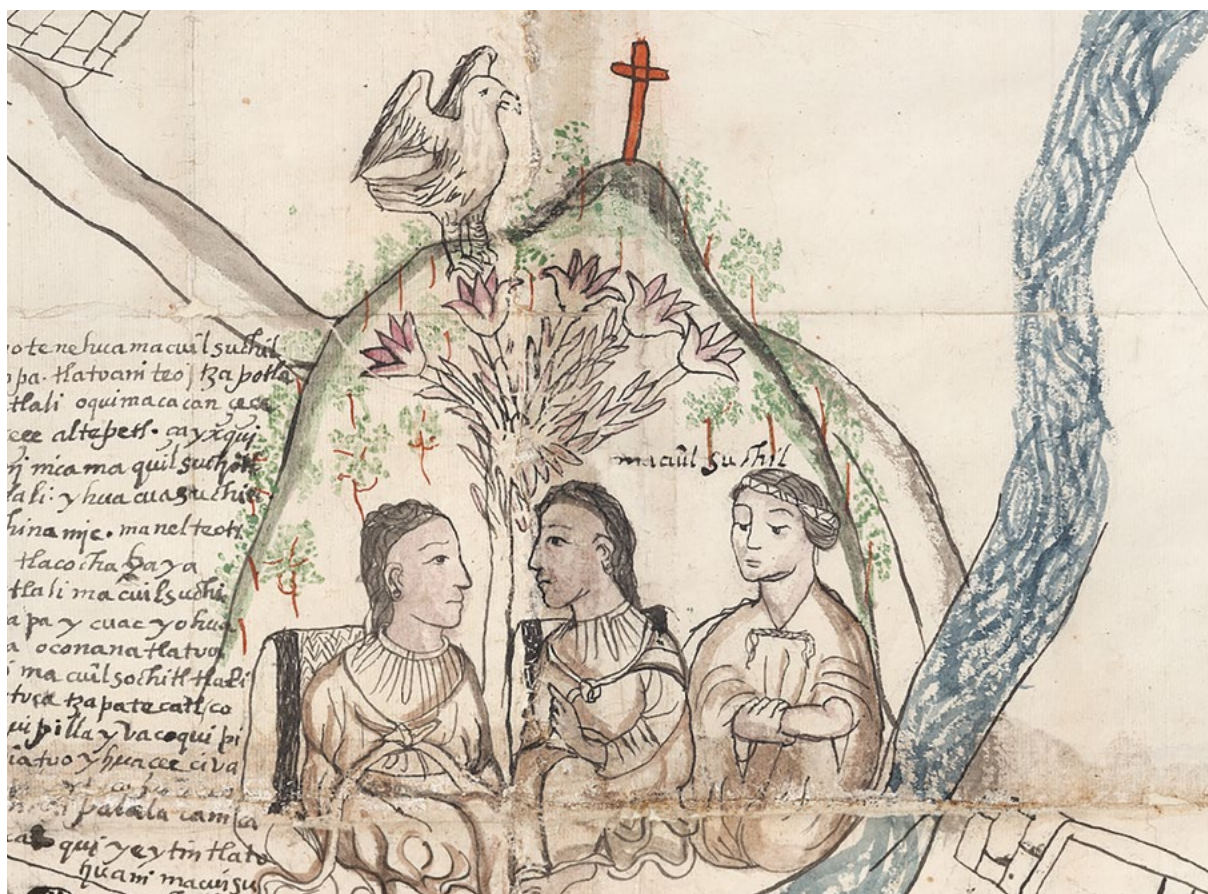 otenehuca macuilsuchil
pa. tlatuani teotzapotla
tlali oquimacacan çeçe
çee altepetl. çayxqui
mica ma quilsuchitl
lali: yhua cuasuchic
hinamic. manelteoti
tlacochabaya
tlali macuilsuchi
apa y cuac yohua
a oconanatlatua
macuilsochitl tlali
tuca tzapatecatl co
ui pilla y vacoqui pi
iatuo yhua çee civa
palala camca
qui yeytin tlato
huani macuisu
macuil suchil